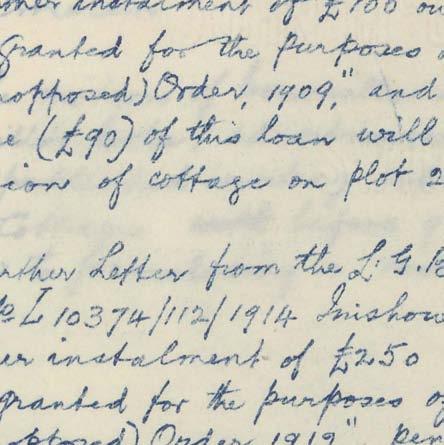 ther instalment of £100 ou
granted for the purposes o
nopposed) Order, 1909," and
e (£90) of this loan will
ion of cottage on plot 2
rther Letter from the L. G. B
No L 10374/112/1914 Inishow
er instalment of £250
granted for the purposes o
pposed) Order 1912"